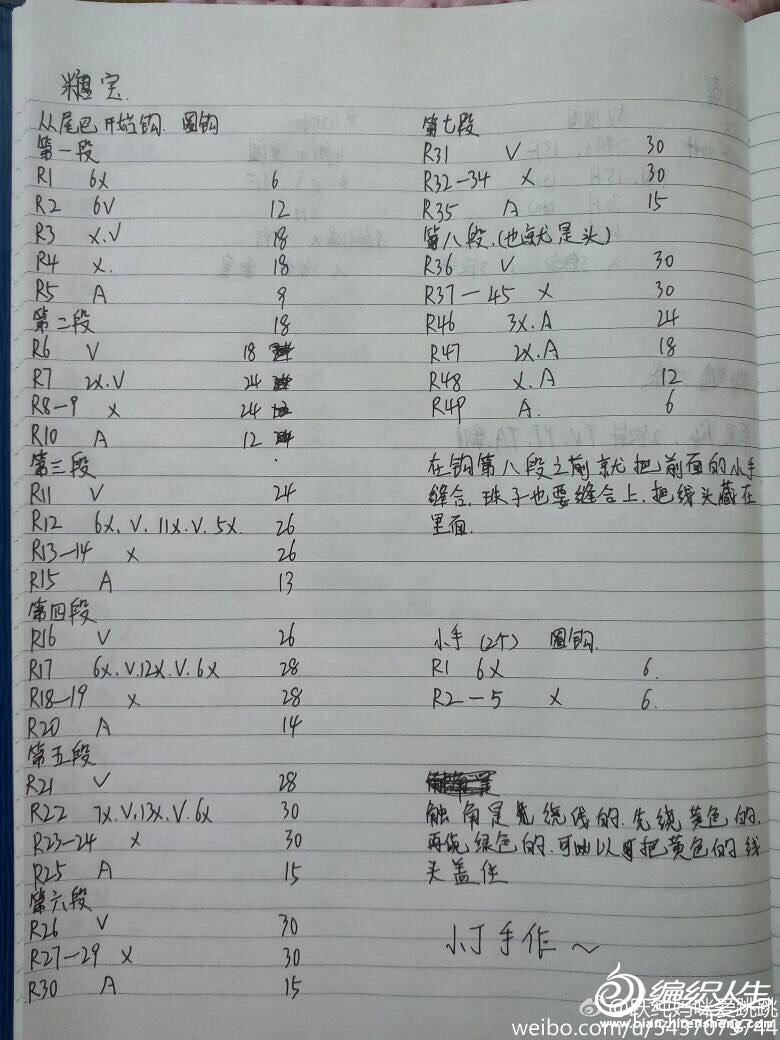 糖宝
从尾巴开始钩. 圈钩
第一段
R1 6X 6
R2 6V 12
R3 X.V 18
R4 X. 18
R5 A 9
第二段 18
R6 V 18
R7 2X.V 24
R8-9 X 24
R10 A 12
第三段
R11 V 24
R12 6X. V. 11X. V. 5X. 26
R13-14 X 26
R15 A 13
第四段
R16 V 26
R17 6X. V. 12X. V. 6X 28
R18-19 X 28
R20 A 14
第五段
R21 V 28
R22 7X. V. 13X. V. 6X 30
R23-24 X 30
R25 A 15
第六段
R26 V 30
R27-29 X 30
R30 A 15
第七段
R31 V 30
R32-34 X 30
R35 A 15
第八段.(也就是头)
R36 V 30
R37-45 X 30
R46 3X.A 24
R47 2X.A 18
R48 X.A 12
R49 A. 6
在钩第八段之前就把前面的小手
缝合. 珠子也要缝合上. 把线头藏在
里面.
小手 (2个) 圈钩.
R1 6X 6.
R2-5 X 6.
触角是先绕线的. 先绕黄色的.
再绕绿色的. 可以把黄色的线
头盖住
小丁手作~
编织人生
bianzhirensheng.com
weibo.com/u/5457075744